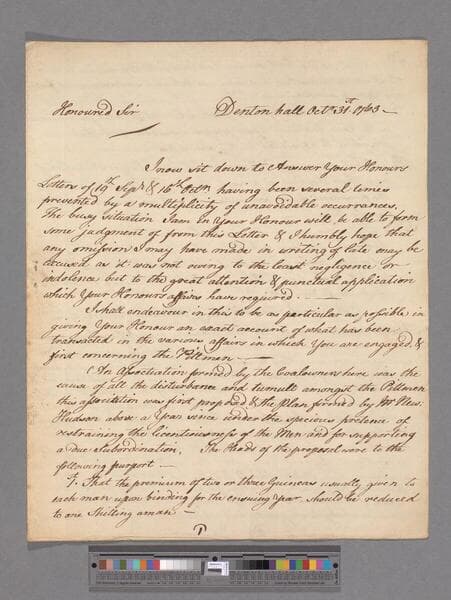 Honoured Sir Denton hall Octr 31st 1765 –
I now sit down to Answer Your Honours
Letters of 19th Septr & 16th Octr having been several times
prevented by a multiplicity of unavoidable occurrances.
The busy situation I am in Your Honour will be able to form
some judgment of from this Letter & I humbly hope that
any omission I may have made in writing of late may be
excused as it was not owing to the least negligence or
indolence but to the great attention & punctual application
which Your Honours affairs have required. –
I shall endeavour in this to be as particular as possible in
giving Your Honour an exact account of what has been
transacted in the various affairs in which You are engaged, &
first concerning the Pittmen –
An Association formed by the Coalowners here was the
cause of all the disturbance and tumult amongst the Pittmen
this association was first proposed & the Plan formed by Mr
Hudson above a Year since under the specious pretence of
restraining the licentiousness of the Men and for supporting
a due Subordination. The Heads of the proposal were to the
following purport –
1st. That the premium of two or three Guineas usually given to
each man upon binding for the ensuing Year should be reduced
to one Shilling a man –
1